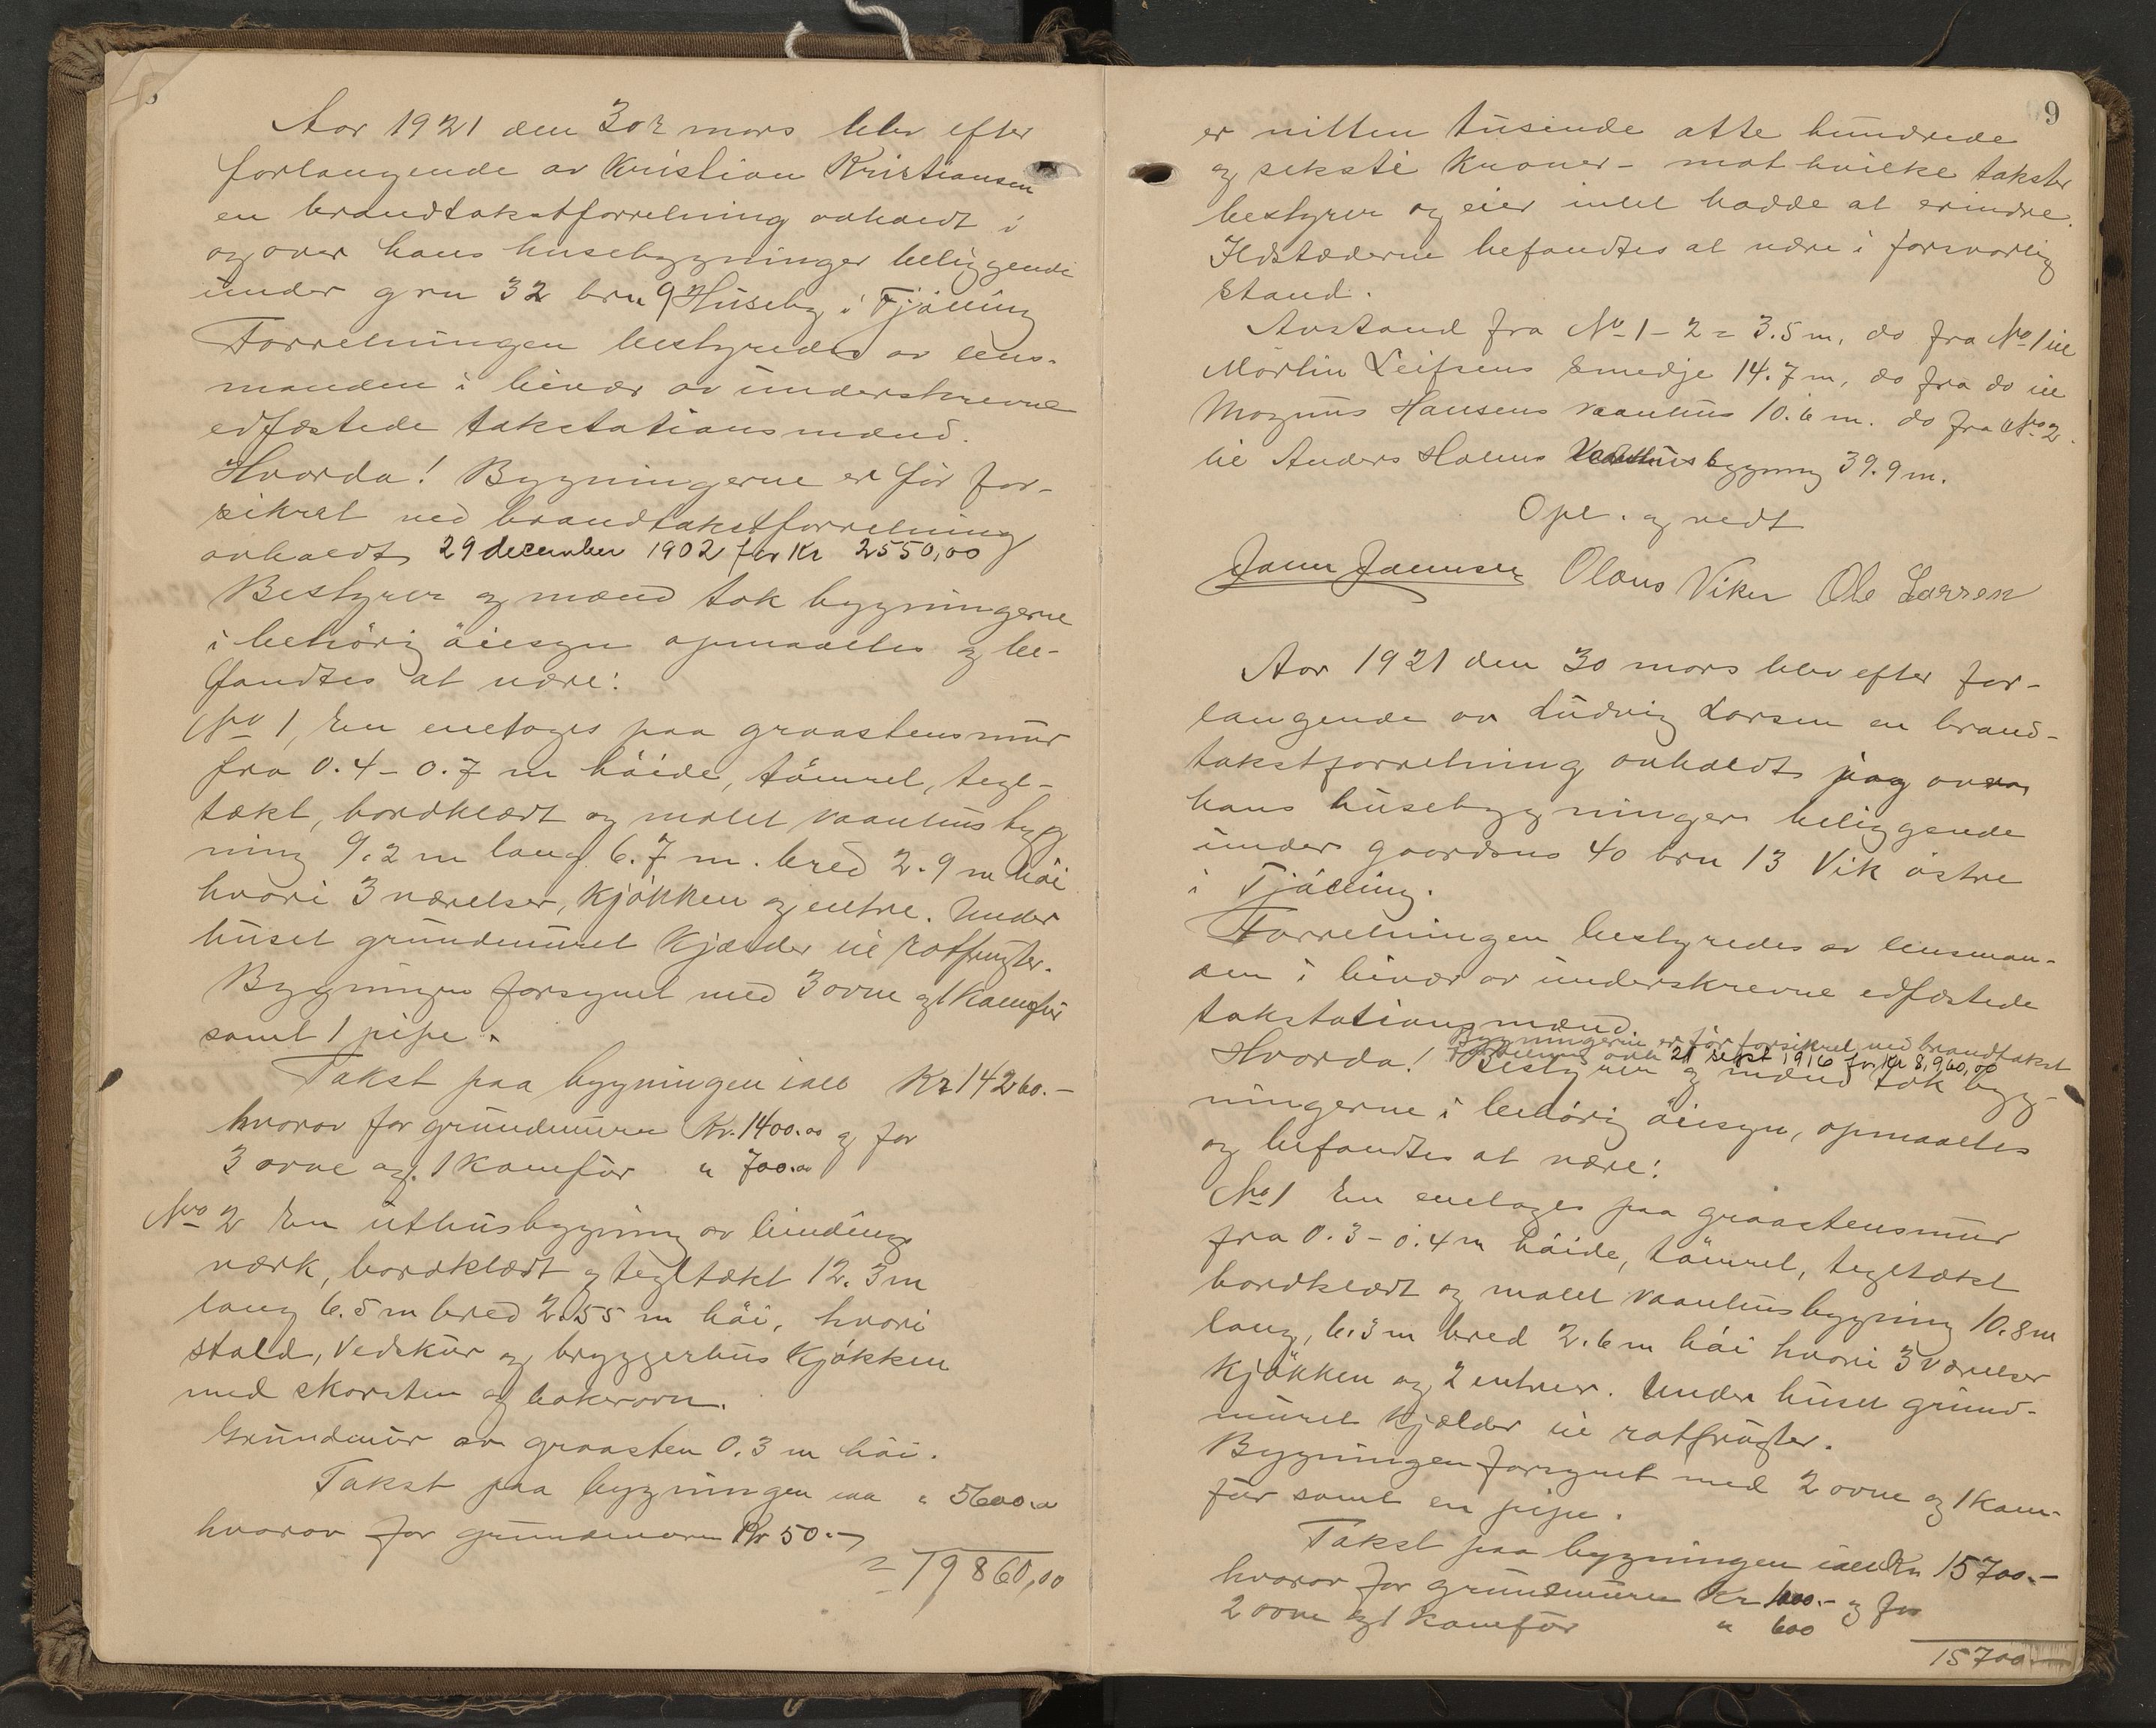 Aar 1921 den 30te mars blev efter
forlangende av Kristian Kristiansen
en brandtakstforretning avholdt i
og over hans husebygninger beliggende
under grn 32 brn 9 Huseby i Tjölling
Forretningen bestyredes av lens-
manden i bivær av underskrevne
edfæstede takstationsmænd.
Hvorda! Bygningerne er før for-
sikret ved brandtakstforretning
avholdt 29 december 1902 for Kr 2550,00
Bestyrer og mænd tok bygningerne
i behörig öiesyn opmaaltes og be-
fandtes at være:
No 1, En enetages paa graastensmur
fra 0.4 - 0.7 m höide, tömret, tegl-
tækt, bordklædt og malet vaanhusbyg
ning 9.2 m lang 6.7 m. bred 2.9 m höi
hvori 3 værelser, kjökken og entre. Under
huset grundmuret kjælder til rotfrugter.
Bygningen forsynet med 3 ovne og 1 komfür
samt 1 pipe.
Takst paa bygningen ialt Kr 14260.-
hvorav for grundmuren Kr. 1400.00 og for
3 ovne og 1 komfür " 700.00
No 2 En uthusbygning av bindings
værk, bordklædt og tegltækt 12.3 m
lang 6.5 m bred 2.55 m höi, hvori
stald, vedskur og bryggerhus kjökken
med skorsten og bakerovn.
Grundmur av graasten 0.3 m höi.
Takst paa bygningen " 5600.00
hvorav for grundmuren Kr 50.-
= 19860,00
9
er nitten tusende otte hundrede
og seksti Kroner - mot hvilke takster
bestyrer og eier intet hadde at erindre.
Ildstæderne befandtes at være i forsvarlig
stand.
Avstand fra No 1 - 2 = 3.5 m, do fra No 1 til
Martin Leifsens Smedje 14.7 m, do fra do til
Magnus Hansens vaanhus 10.6 m. do fra No 2
til Anders Holms bygning 39.9 m.
Opl. og vedt
Olaus Viker Ole Larsen
Aar 1921 den 30 mars blev efter for-
langende av Ludvig Larsen en brand-
takstforretning avholdt paa over
hans husebygninger beliggende
under gaardsno 40 brn 13 Vik östre
i Tjölling.
Forretningen bestyredes av lensman-
den i bivær av underskrevne edfæstede
takstationsmænd.
Bygningerne er før forsikret ved brandtakst
forretning avh 21 sept 1916 for Kr 8,960,00
Hvorda! Bestyrer og mænd tok byg-
ningerne i behörig öiesyn, opmaaltes
og befandtes at være:
No 1 En enetages paa graastensmur
fra 0.3 - 0.4 m höide, tömret, tegltækt
bordklædt og malet vaanhusbygning 10.8 m
lang, 6.3 m bred 2.6 m höi hvori 3 værelser
kjökken og 2 entreer. Under huset grund-
muret kjælder til rotfrugter.
Bygningen forsynet med 2 ovne og 1 kom-
für samt en pipe.
Takst paa bygningen ialt Kr 15700.-
hvorav for grundmuren Kr og for
2 ovne og 1 komfür " 600
15700